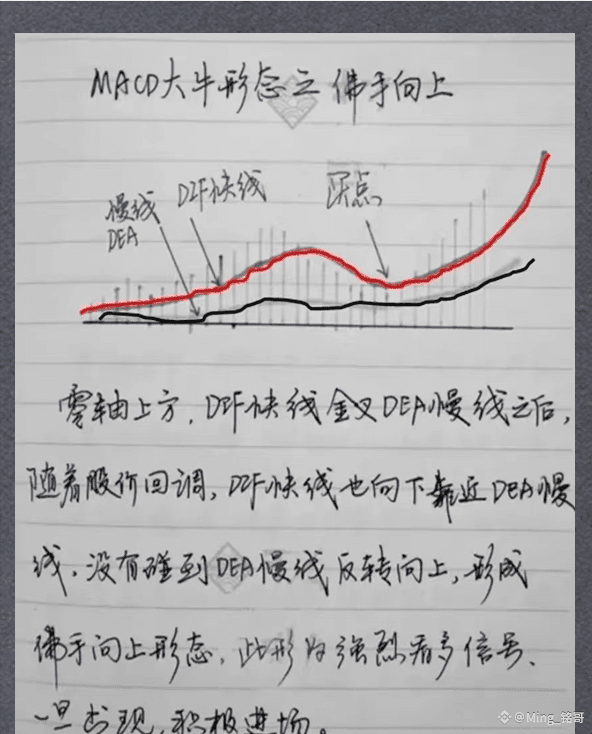 MACD大牛形态之佛手向上
慢线
DEA
DIF快线
买点
零轴上方,DIF快线金叉DEA慢线之后,
随着股价回调,DIF快线也向下靠近DEA慢
线,没有碰到DEA慢线反转向上,形成
佛手向上形态,此形为强烈看多信号、
一旦出现,积极进场。
@Ming_铭哥